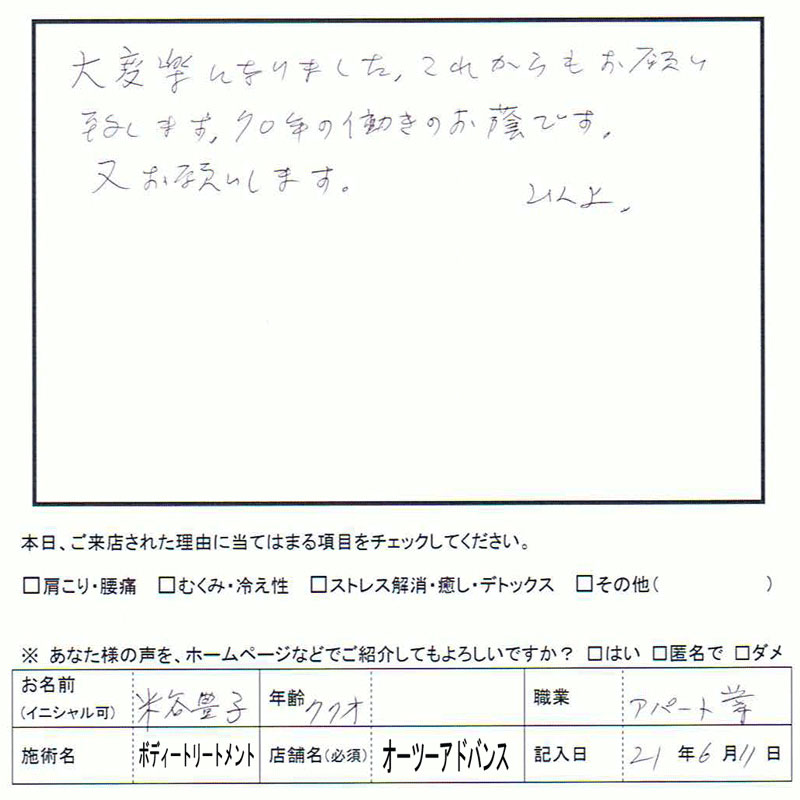 大変楽になりました。これからもお願い
致します。70年の働きのお蔭です。
又お願いします。
本日、ご来店された理由に当てはまる項目をチェックしてください。
□肩こり・腰痛 □むくみ・冷え性 □ストレス解消・癒し・デトックス □その他( )
※ あなた様の声を、ホームページなどでご紹介してもよろしいですか？ □はい □匿名で □ダメ
お名前 (イニシャル可) 米谷豊子 年齢 77才 職業 アパート業
施術名 ボディートリートメント 店舗名(必須) オーツーアドバンス 記入日 21年6月11日